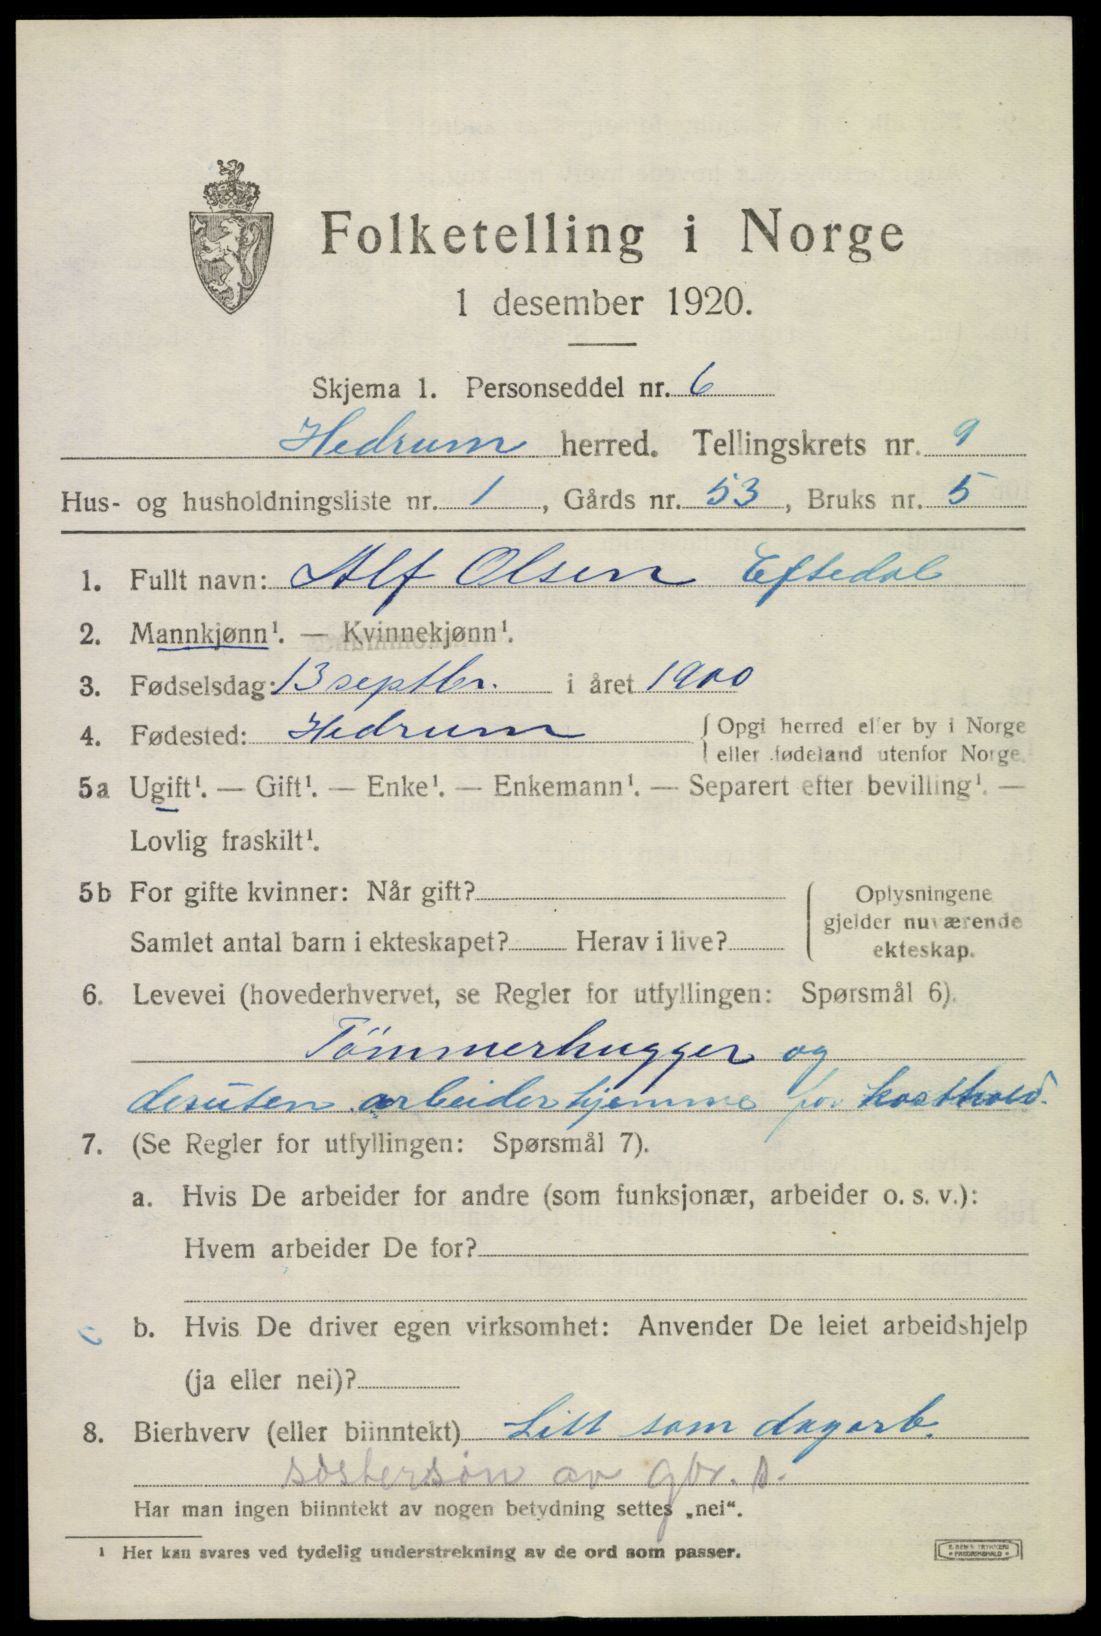 Folketelling i Norge
1 desember 1920.
Skjema 1. Personseddel nr. 6
Hedrum herred. Tellingskrets nr. 9
Hus- og husholdningsliste nr. 1, Gårds nr. 53, Bruks nr. 5
1. Fullt navn: Alf Olsen Eftedal
2. Mannkjønn¹. — Kvinnekjønn¹.
3. Fødselsdag: 13 septbr. i året 1900
4. Fødested: Hedrum { Opgi herred eller by i Norge
eller fødeland utenfor Norge.
5a Ugift¹. — Gift¹. — Enke¹. — Enkemann¹. — Separert efter bevilling¹. —
Lovlig fraskilt¹.
5b For gifte kvinner: Når gift?
Samlet antal barn i ekteskapet? Herav i live?
{ Oplysningene
gjelder nuværende
ekteskap.
6. Levevei (hovederhvervet, se Regler for utfyllingen: Spørsmål 6).
Tömmerhugger og
desuten arbeider hjemme for kosthold.
7. (Se Regler for utfyllingen: Spørsmål 7).
a. Hvis De arbeider for andre (som funksjonær, arbeider o. s. v.):
Hvem arbeider De for?
b. Hvis De driver egen virksomhet: Anvender De leiet arbeidshjelp
(ja eller nei)?
8. Bierhverv (eller biinntekt) Litt som dagarb.
søstersøn av gbr. s.
Har man ingen biinntekt av nogen betydning settes „nei“.
¹ Her kan svares ved tydelig understrekning av de ord som passer.